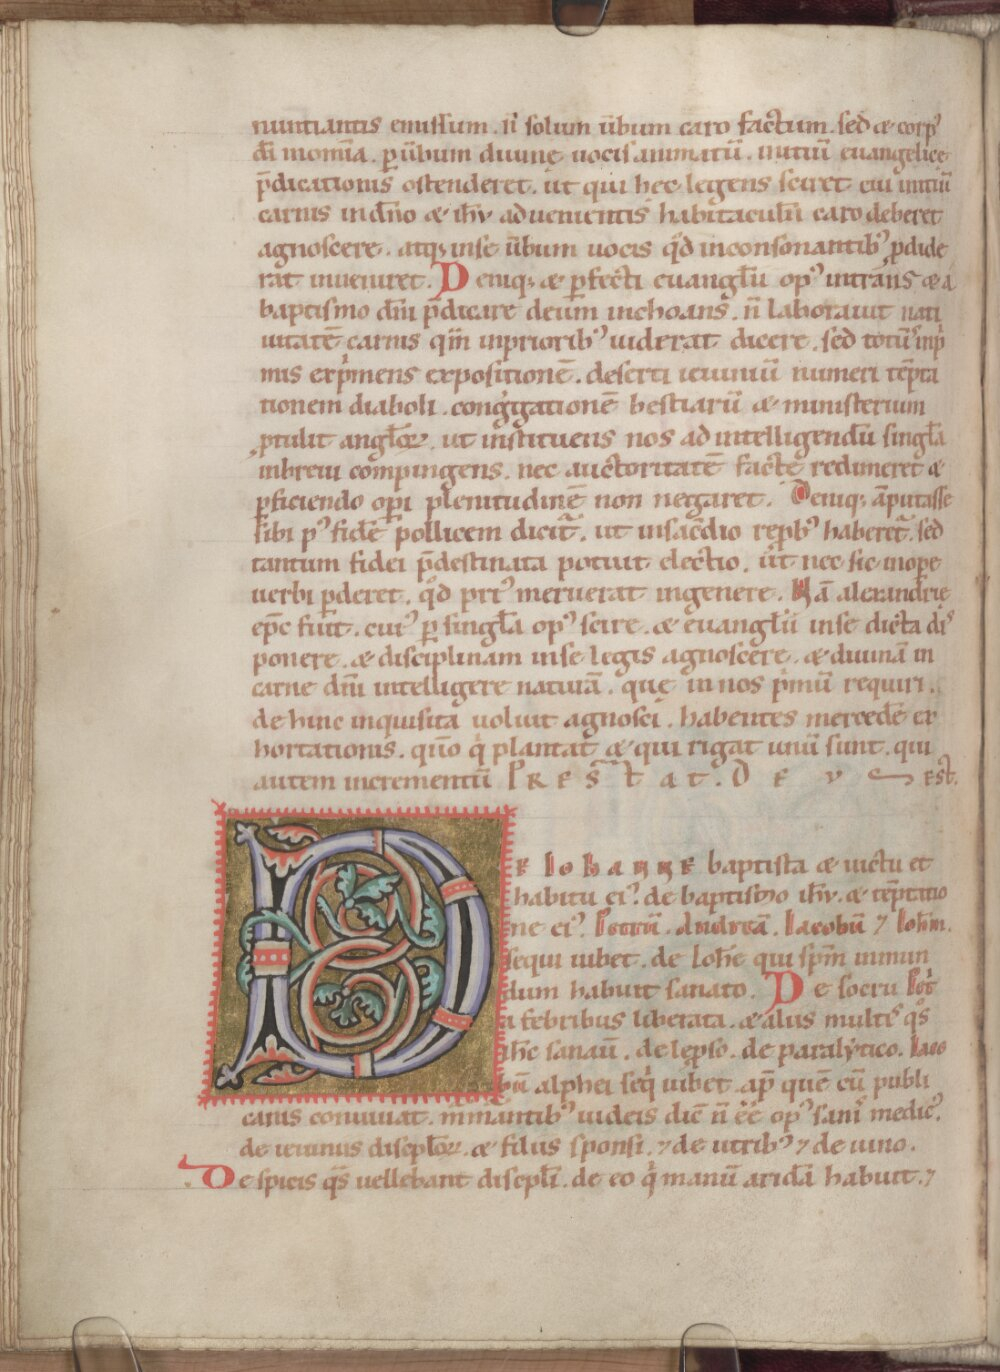 nuntiantis emissum. ñ solum ūbum caro factum. sed & corpꝰ
dñi momīa. ꝑ ūbum diuinę uocis animatū. initiū euangelicę
p̄dicationis ostenderet. ut qui hec legens sciret cui initiū
carnis in dño & ihū aduenientis habitaculū caro deberet
agnoscere. atq; in se ūbum uocis qd̄ in consonantibꝰ ꝑdide
rat inueniret. Deniq; & ꝑfecti euangłii opꝰ intrans & a
baptismo dñi p̄dicare deum inchoans. ñ laborauit nati
uitatē carnis qm̄ in prioribꝰ uiderat dicere. sed totūs in p̓
mis exp̓mens expositionē. deserti ieiuniū numeri tēpta
tionem diaboli. cong̓gationē bestiarū & ministerium
ꝓtulit angłoꝝ. ut instituens nos ad intelligendū singła
in breui compingens. nec auctoritatē factę redimeret &
ꝑficiendo oꝑi plenitudinē non negaret. Deniq; āputasse
sibi pꝰ fidē pollicem dicit̃. ut in sac̄dio reꝑbꝰ haberet̃. sed
tantum fidei p̄destinata potuit electio. ut nec sic in oꝑe
uerbi ꝑderet. qd̄ priꝰ meruerat in genere. Nā alexandrię
ep̄c fuit. cuiꝰ ꝑ singła opꝰ scire. & euangłii in se dicta dis
ponere. & disciplinam in se legis agnoscere. & diuinā in
carne dñi intelligere naturā. quę in nos p̓mū requiri.
de hinc inquisita uoluit agnosci. habentes mercedē ex
hortationis. qm̄o q̓ plantat & qui rigat unū sunt. qui
autem incrementū PRESTAT. DEUS EST.
DE IOHANNE baptista & uictu et
habitu eiꝰ. de baptismo ihū. & tēptatio
ne eiꝰ. Petrū. Andreā. Iacobū ⁊ Ioħm.
sequi iubet. de Ioħe qui spm̄ inmun
dum habuit sanato. De socru Pet̓
a febribus liberata. & alus multis qs̊
ihc̄ sanaū. de lepso. de paralytico. Iaco
bū alphei seq̓ iubet. ap̄ quē cū publi
canis conuiuat. m̄mrantibꝰ iudeis dic̄ ñ ēē opꝰ sanis medicꝰ.
de ieiuniis discipłoꝝ. & filiis sponsi. ⁊ de utribꝰ ⁊ de uino.
De spicis qs̄ uellebant discipłi. de eo q̓ manū aridā habuit. ⁊